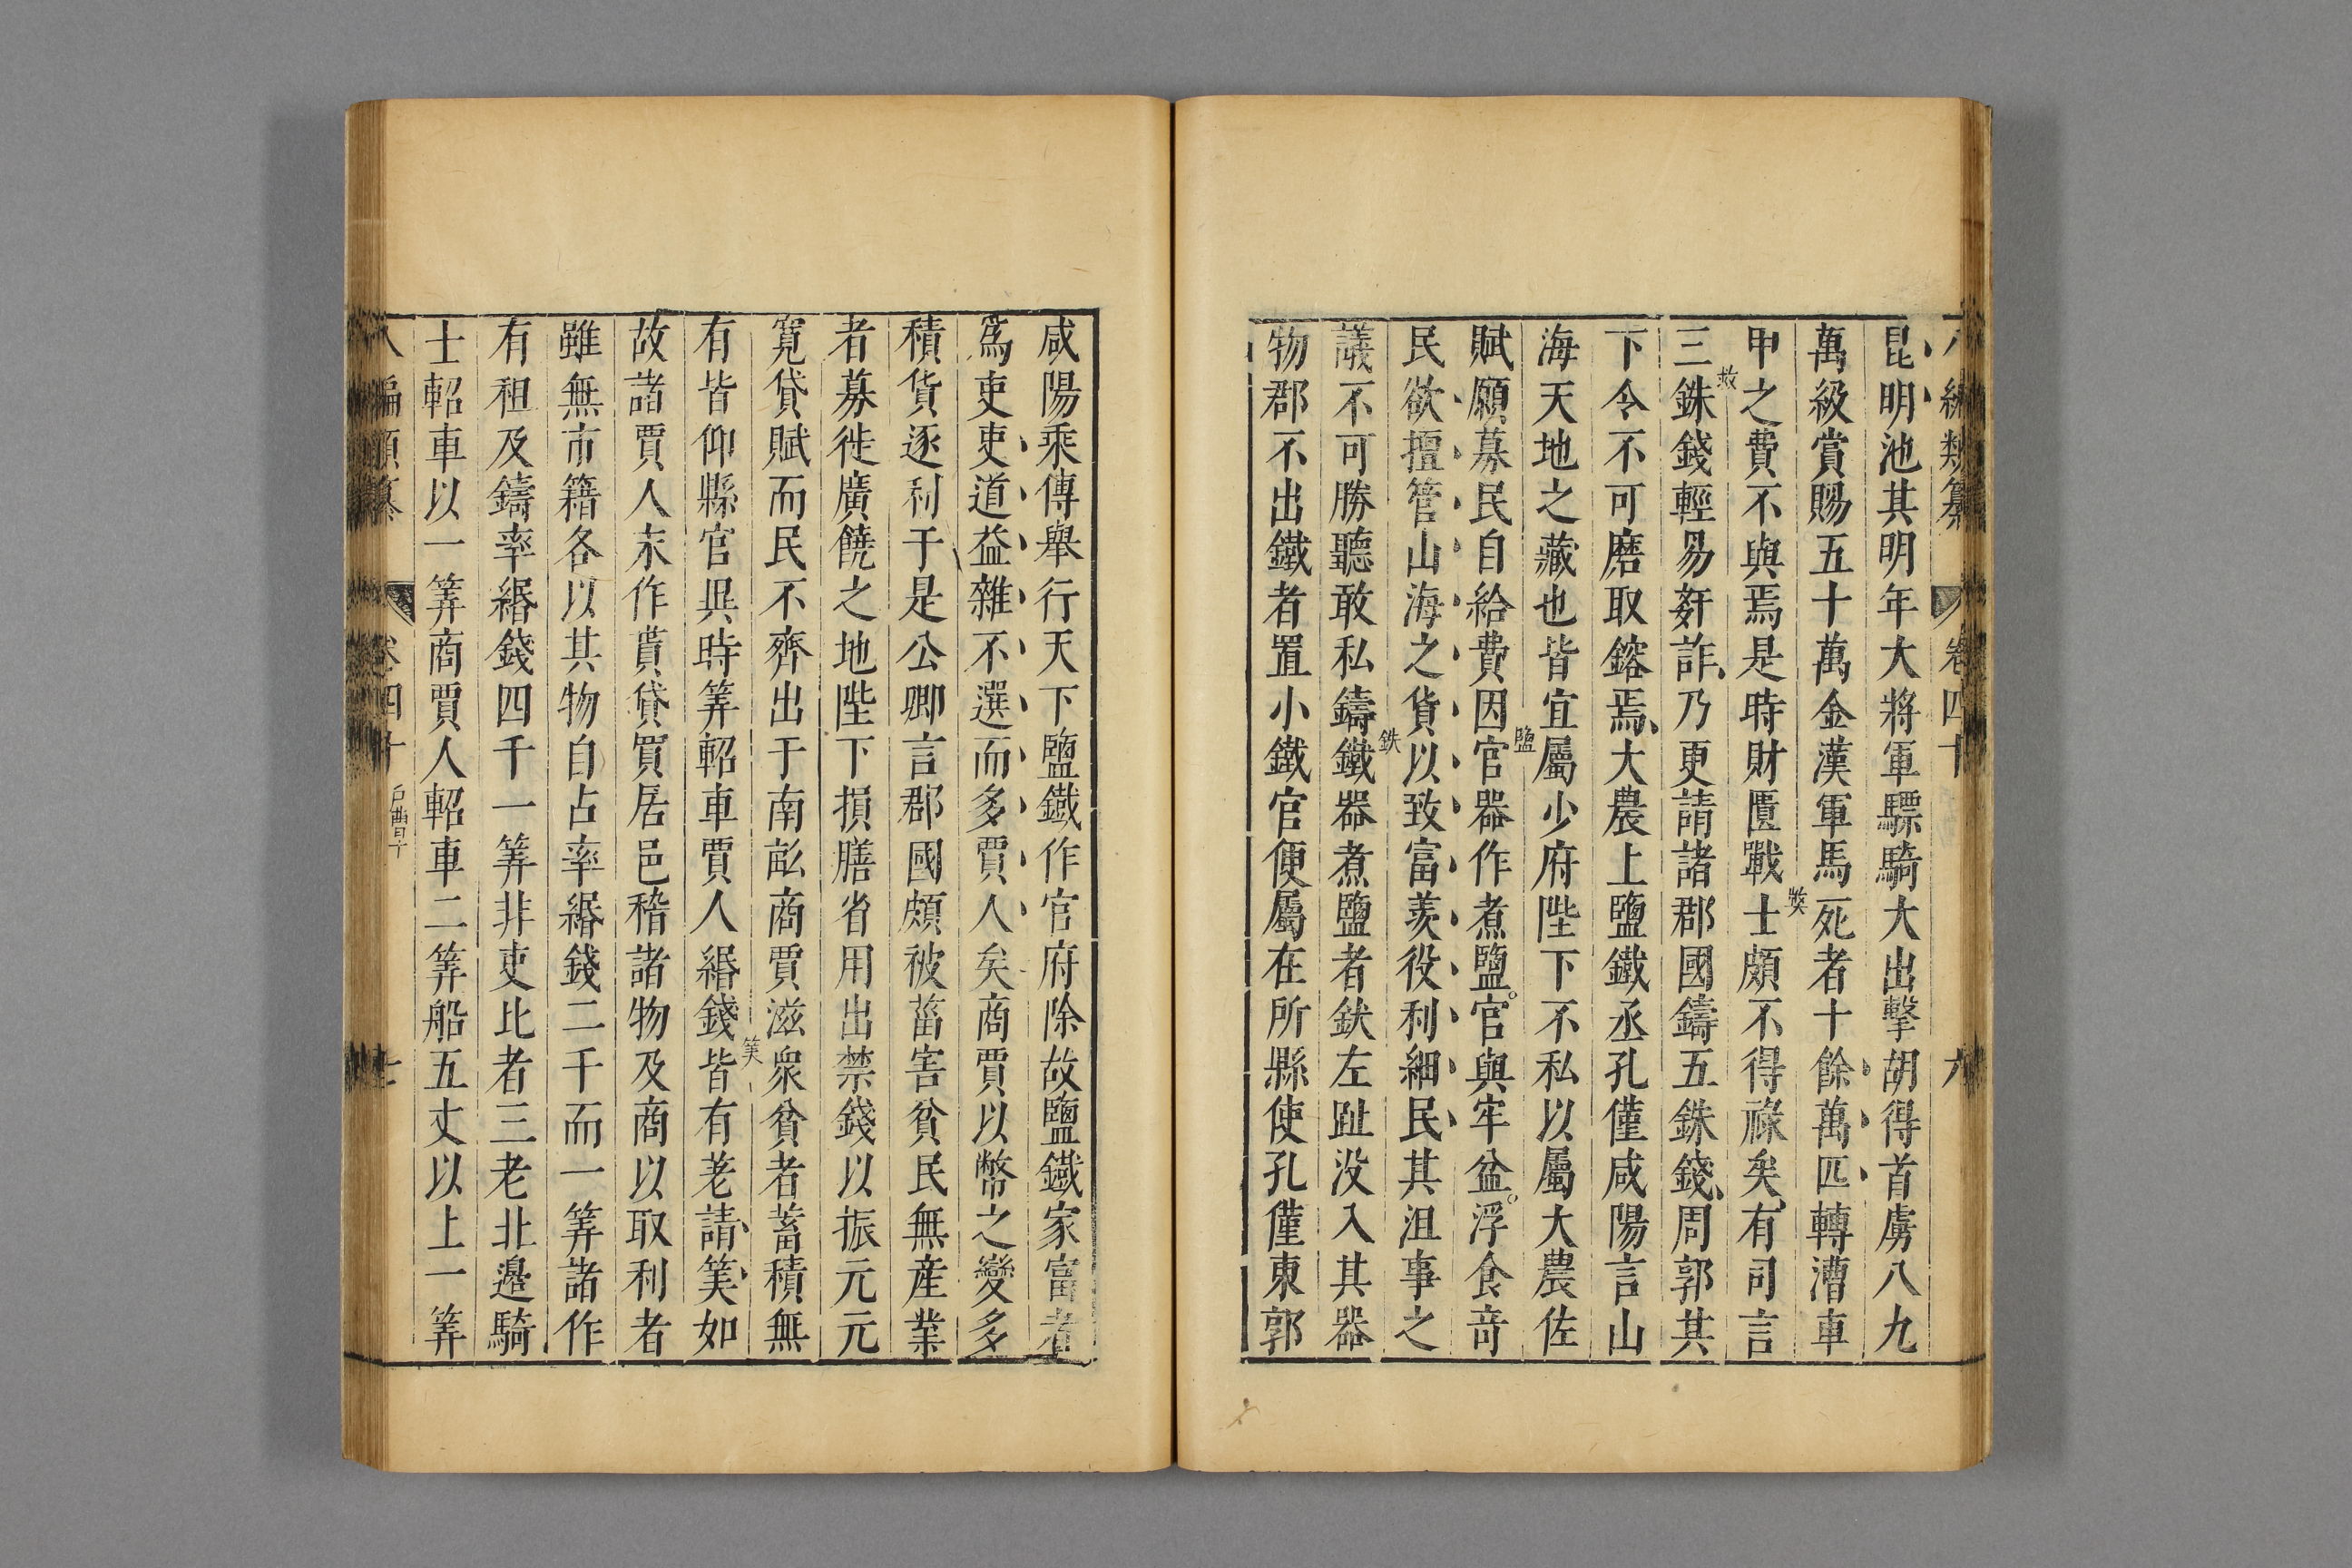 八編類纂 卷四十 六
昆明池其明年大將軍驃騎大出擊胡得首虜八九
萬級賞賜五十萬金漢軍馬死者十餘萬匹轉漕車
甲之費不與焉是時財匱戰士頗不得祿矣有司言
三銖錢輕易姧詐乃更請諸郡國鑄五銖錢周郭其
下令不可磨取鎔焉大農上鹽鐵丞孔僅咸陽言山
海天地之藏也皆宜屬少府陛下不私以屬大農佐
賦願募民自給費因官器作煮鹽官與牢盆浮食奇
民欲擅管山海之貨以致富羡役利細民其沮事之
議不可勝聽敢私鑄鐵器煮鹽者鈇左趾没入其器
物郡不出鐵者置小鐵官便屬在所縣使孔僅東郭
咸陽乘傳舉行天下鹽鐵作官府除故鹽鐵家富者
爲吏吏道益雜不選而多賈人矣商賈以幣之變多
積貨逐利于是公卿言郡國頗被菑害貧民無產業
者募徙廣饒之地陛下損膳省用出禁錢以振元元
寬貸賦而民不齊出于南畝商賈滋衆貧者蓄積無
有皆仰縣官異時筭軺車賈人緡錢皆有差請筭如
故諸賈人末作貰貸買居邑稽諸物及商以取利者
雖無市籍各以其物自占率緡錢二千而一筭諸作
有租及鑄率緡錢四千一筭非吏比者三老北邊騎
士軺車以一筭商賈人軺車二筭船五丈以上一筭
八編類纂 卷四十 戶曹 七